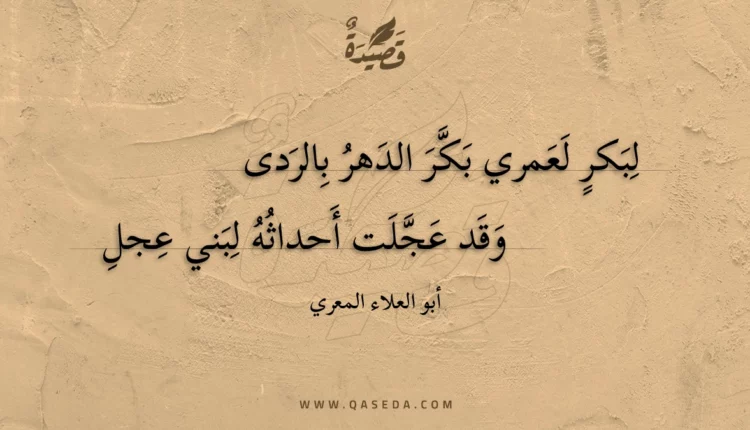 قَصِيدَةٌ
لِبَكرٍ لَعَمري بَكَّرَ الدَهرُ بِالرَدى
وَقَد عَجَّلَت أَحداثُهُ لِبَني عِجلِ
أبو العلاء المعري
WWW.QASEDA.COM